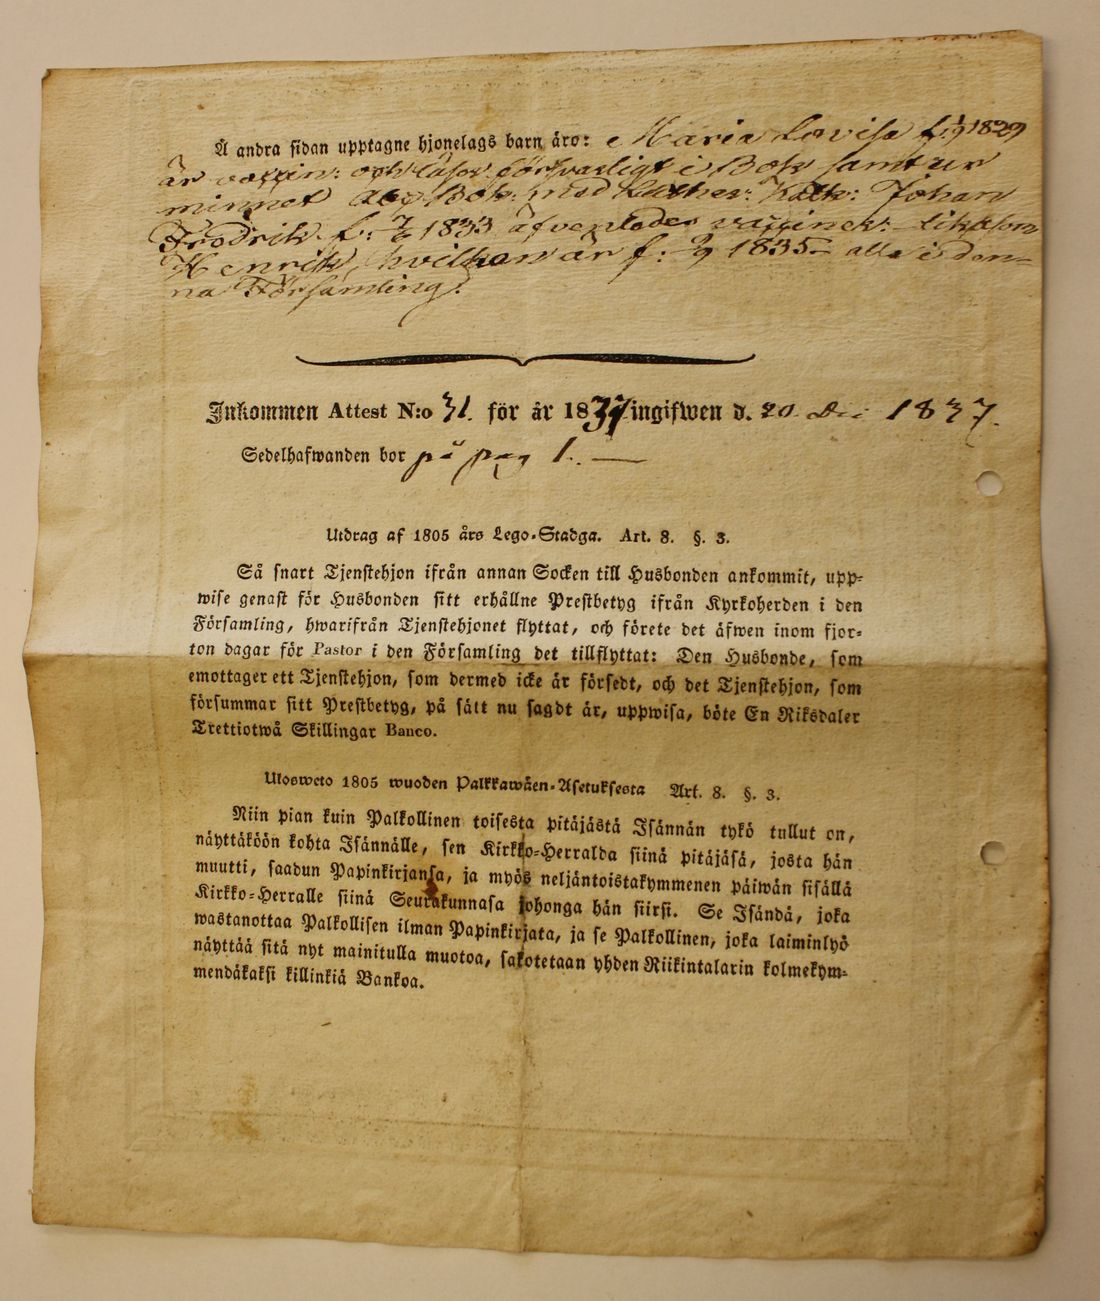 Å andra sidan upptagne hjonelags barn äro: Maria Lovisa f: 1829
är vaccin: och läser försvarligt i Bok samt ur
minnet Abc Bok: med Luther: Kate: Johan
Fredrik f: 1833 äfvenledes vaccinek: likasom
Henrik, hvilken är f: 1835 alla i den-
na Församling.
Inkommen Attest N:o 31. för år 1837 ingifwen d. 20 Dec 1837.
Sedelhafwanden bor på pag 1. —
Utdrag af 1805 års Lego-Stadga. Art. 8. §. 3.
Så snart Tjenstehjon ifrån annan Socken till Husbonden ankommit, upp-
wise genast för Husbonden sitt erhållne Prestbetyg ifrån Kyrkoherden i den
Församling, hwarifrån Tjenstehjonet flyttat, och förete det äfwen inom fjor-
ton dagar för Pastor i den Församling det tillflyttat: Den Husbonde, som
emottager ett Tjenstehjon, som dermed icke är försedt, och det Tjenstehjon, som
försummar sitt Prestbetyg, på sätt nu sagdt är, uppwisa, böte En Riksdaler
Trettiotwå Skillingar Banco.
Ulosweto 1805 wuoden Palkkawäen-Asetuksesta Art. 8. §. 3.
Niin pian kuin Palkollinen toisesta pitäjästä Isännän tykö tullut on,
näyttäköön kohta Isännälle, sen Kirkko-Herralda siinä pitäjäsä, josta hän
muutti, saadun Papinkirjansa, ja myös neljäntoistakymmenen päiwän sisällä
Kirkko-Herralle siinä Seurakunnasa johonga hän siirsi. Se Isändä, joka
wastanottaa Palkollisen ilman Papinkirjata, ja se Palkollinen, joka laiminlyö
näyttää sitä nyt mainitulla muotoa, sakotetaan yhden Riikintalarin kolmekym-
mendäkaksi killinkiä Bankoa.